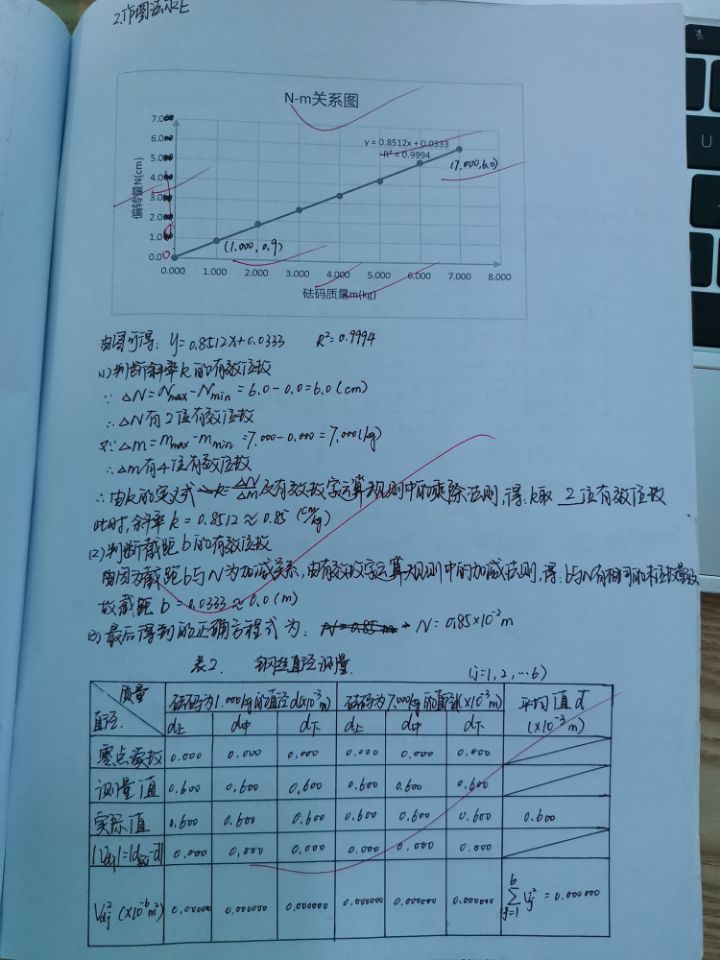 2.作图法求E
N-m关系图
偏转量N(cm)
7.0
6.0
5.0
4.0
3.0
2.0
1.0
0.0
y = 0.8512x + 0.0333
R² = 0.9994
(7.000,6.0)
(1.000, 0.9)
0.000 1.000 2.000 3.000 4.000 5.000 6.000 7.000 8.000
砝码质量m(kg)
由图可得: y=0.8512x+0.0333 R²=0.9994
(1)判断斜率k的有效位数
∵ ΔN=Nmax-Nmin=6.0-0.0=6.0(cm)
∴ΔN有2位有效位数
又∵Δm=mmax-mmin=7.000-0.000=7.000(kg)
∴Δm有4位有效位数
∴由k的定义式 k=ΔN/Δm及有效数字运算规则中的乘除法则,得:k取 2位有效位数
此时,斜率k=0.8512≈0.85 (cm/kg)
(2)判断截距b的有效位数
由因为截距b与N为加减关系,由有效数字运算规则中的加减法则,得:b与N有相同的末位
故截距 b=0.0333≈0.0(m)
(3)最后得到的正确方程式为: N=0.85m N=0.85×10⁻²m
表2. 钢丝直径测量 (j=1,2,…6)
质量 砝码为1.000kg的直径d(×10⁻³m) 砝码为7.000kg的直径d(×10⁻³m) 平均值d̄
直径. d上 d中 d下 d上 d中 d下 (×10⁻³m)
零点读数 0.000 0.000 0.000 0.000 0.000 0.000
测量值 0.600 0.600 0.600 0.600 0.600 0.600
实际值 0.600 0.600 0.600 0.600 0.600 0.600 0.600
0.000 0.000 0.000 0.000 0.000 0.000
Vdj² (×10⁻⁶m²) 0.000000 0.000000 0.000000 0.000000 0.000000 0.000000 6∑j=1 Vj² = 0.000000